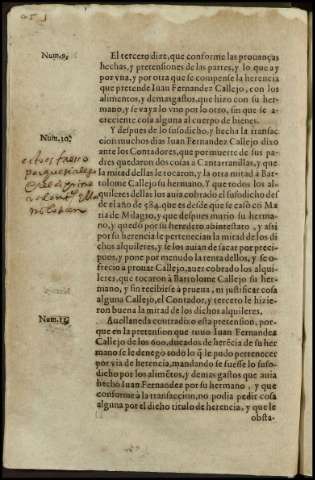 Num.9.
El tercero dize, que conforme las prouanças
hechas, y pretensiones de las partes, y lo que ay
por vna, y por otra que se compense la herencia
que pretende Iuan Fernandez Callejo, con los
alimentos, y demas gastos, que hizo con su her-
mano, y se vaya lo vno por lo otro, sin que se a-
creciente cosa alguna al cuerpo de bienes.
Num.10.
Y despues de lo susodicho, y hecha la transac-
cion muchos dias Iuan Fernandez Callejo dixo
ante los Contadores, que por muerte de sus pa-
dres quedaron dos cosas a Cantarranillas, y que
la mitad dellas le tocaron, y la otra mitad a Bar-
tolome Callejo su hermano, Y que todos los al-
quileres dellas los auia cobrado el susodicho des-
de el año de 584. que es desde que se casò cn Ma-
ria de Milagro, y que despues murio su herma-
no, y quedò por su heredero abintestato, y assi
por su herencia le pertenecian la mitad de los di-
chos alquileres, y se los auian de sacar por preci-
puos, y pone por menudo la renta dellos, y se o-
frecio a prouar Callejo, auer cobrado los alqui-
leres, que tocaron à Bartolome Callejo su her-
mano, y sin recibirse a prueua, ni justificar cosa
alguna Callejo, el Contador, y tercero le hizie-
ron buena la mitad de los dichos alquileres.
Num.11.
Auellaneda contradixo esta pretension, por-
que en la pretension que tuuo Iuan Fernandez
Callejo de los 600. ducados de herẽcia de su her
mano se le denegò todo lo q̃ le pudo pertenecer
por via de herencia, mandando se fuesse lo suso-
dicho por los alimẽtos, y demas gastos que auia
hecho Iuan Fernandez por su hermano, y que
conforme à la transaccion, no podia pedir cosa
alguna por el dicho titulo de herencia, y que le
obsta-